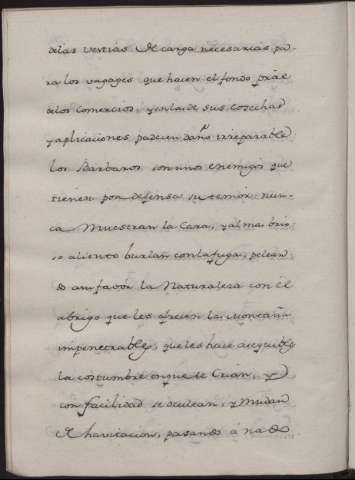 delas vestias de carga necesarias pa-
ra los vagages que hacen el fondo prãl
delos comercios, y en la de sus cosechas
y aplicaciones padecen daño irreparable:
los Barbaros son unos enemigos que
tienen por defensa su temor: nun-
ca muestran la Cara, y al mas brio-
so aliento burlan con la fuga, pelean-
do a su favor la Naturaleza con el
abrigo que les ofrecen las Montañas
impenetrables, que les hace asequible
la costumbre en que se Crian, y
con facilidad se ocultan, y mudan
de havitacion, pasando á nado